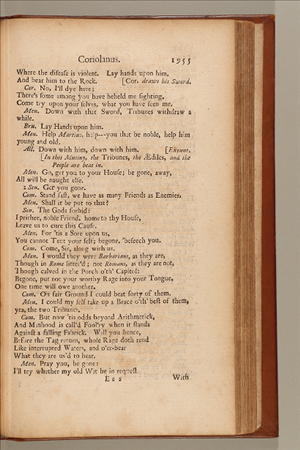 Coriolanus. 1955
Where the diſeaſe is violent. Lay hands upon him,
And bear him to the Rock. [Cor. draws his Sword.
Cor. No, I'll dye here;
There's ſome among you have beheld me fighting,
Come try upon your ſelves, what you have ſeen me.
Men. Down with that Sword, Tribunes withdraw a
while.
Bru. Lay Hands upon him.
Men. Help Martius, help---you that be noble, help him
young and old.
All. Down with him, down with him. [Exeunt.
[In this Mutiny, the Tribunes, the Ædiles, and the
People are beat in.
Men. Go, get you to your Houſe; be gone, away,
All will be naught elſe.
2 Sen. Get you gone.
Com. Stand faſt, we have as many Friends as Enemies.
Men. Shall it be put to that?
Sen. The Gods forbid:
I prithee, noble Friend, home to thy Houſe,
Leave us to cure this Cauſe.
Men. For 'tis a Sore upon us,
You cannot Tent your ſelf; begone, 'beſeech you.
Com. Come, Sir, along with us.
Men. I would they were Barbarians, as they are,
Though in Rome litter'd; not Romans, as they are not,
Though calved in the Porch o'th' Capitol:
Begone, put not your worthy Rage into your Tongue,
One time will owe another.
Com. On fair Ground I could beat forty of them.
Men. I could my ſelf take up a Brace o'th' beſt of them,
yea, the two Tribunes.
Com. But now 'tis odds beyond Arithmetick,
And Manhood is call'd Fool'ry when it ſtands
Againſt a falling Fabrick. Will you hence,
Before the Tag return, whoſe Rage doth rend
Like interrupted Waters, and o'er-bear
What they are us'd to bear.
Men. Pray you, be gone:
I'll try whether my old Wit be in requeſt
E e 2 With